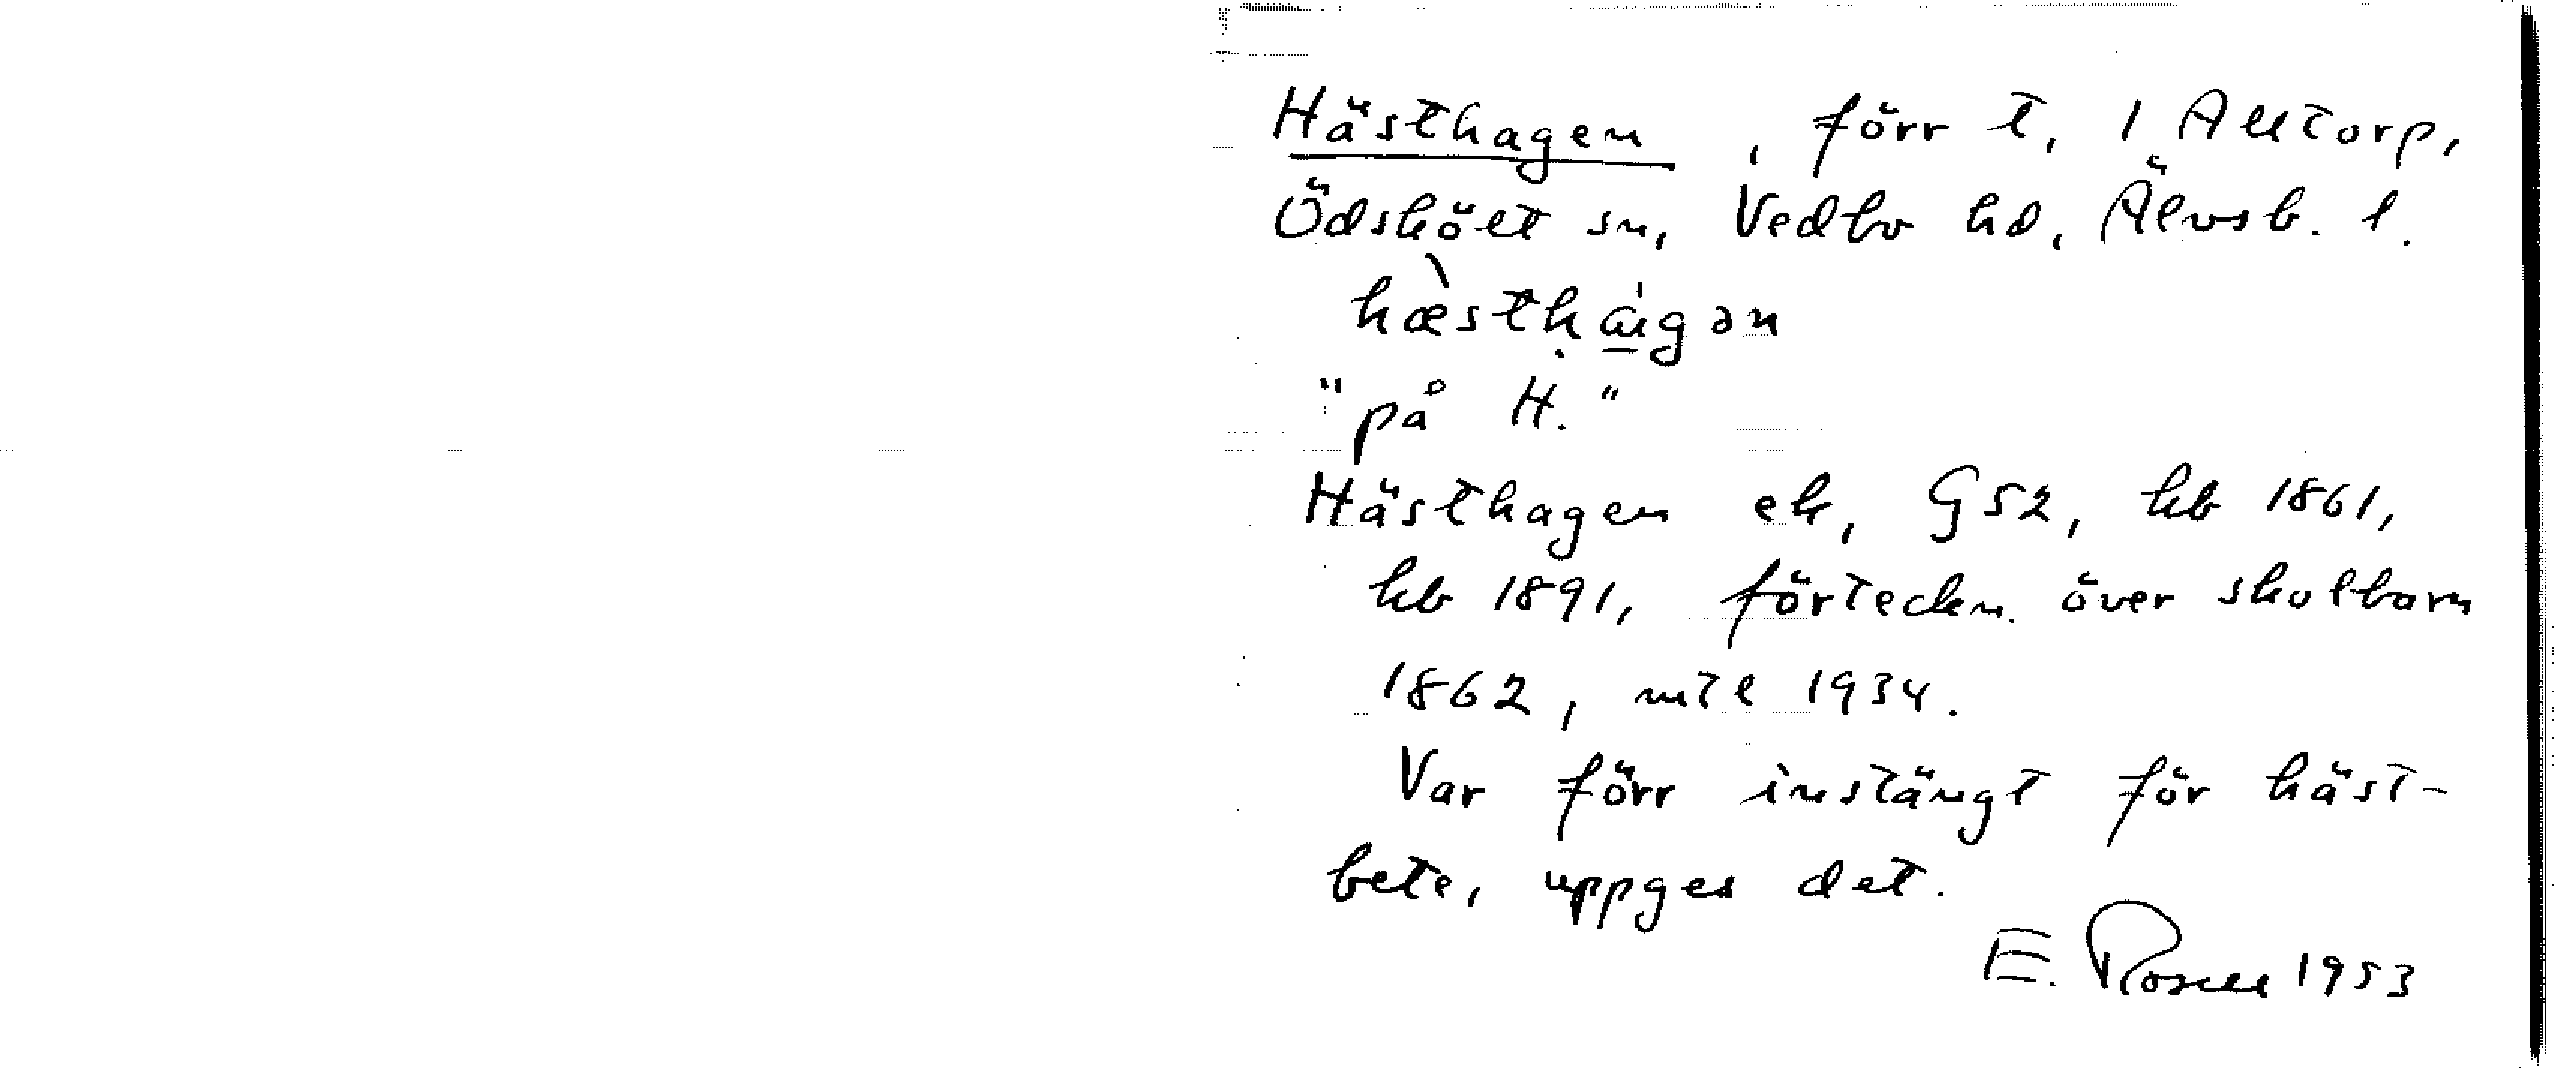 Hästhagen, förr t, 1 Alltorp,
Ödskölt sn, Vedbo hd, Älvsb. l.
hæ̀stḥa̲gən
"på H."
Hästhagen ek, G52, hb 1861,
hb 1891, förteckn. över skolbarn
1862, mtl 1934.
Var förr instängt för häst-
bete, uppges det.
E. Rosell 1953